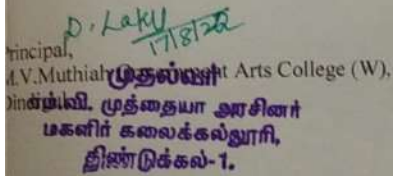 D. Laky
17/8/22
Principal,
M.V.Muthiah Government Arts College (W),
Dindigul
முதல்வர்
எம்.வி. முத்தையா அரசினர்
மகளிர் கலைக்கல்லூரி,
திண்டுக்கல்-1.